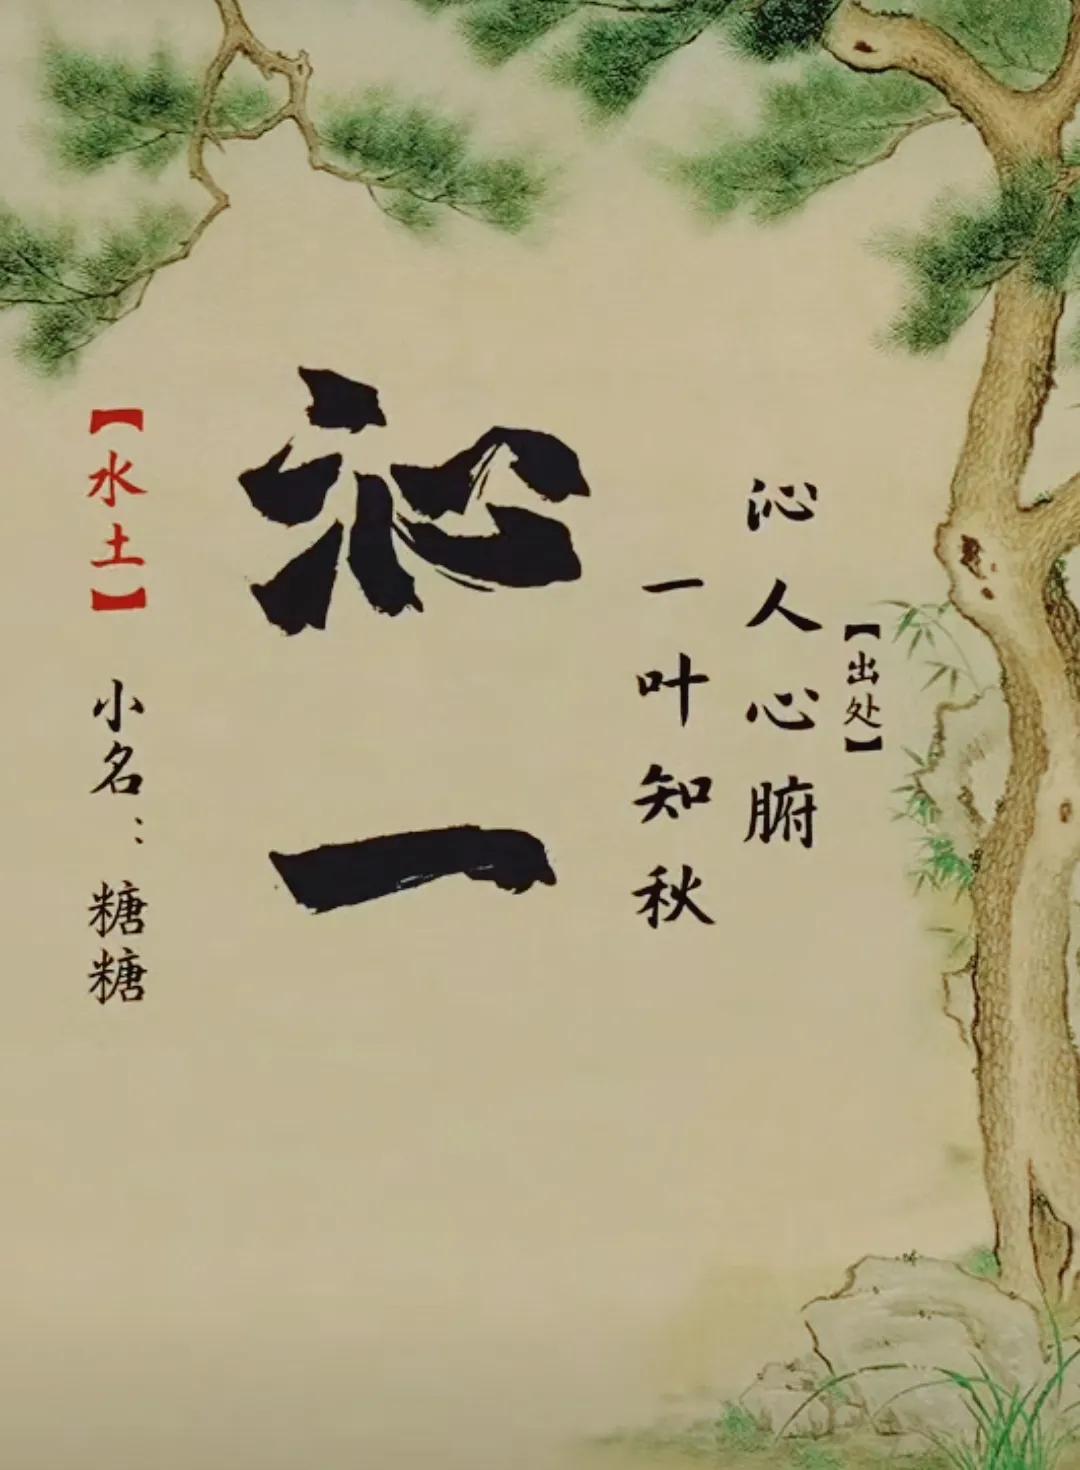 【出处】
沁人心腑
一叶知秋
沁一
【水土】
小名：糖糖